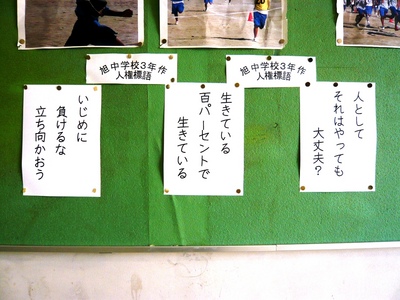 旭中学校3年作
人権標語
旭中学校3年作
人権標語
人として
それはやっても
大丈夫?
生きている
百パーセントで
生きている
いじめに
負けるな
立ち向かおう